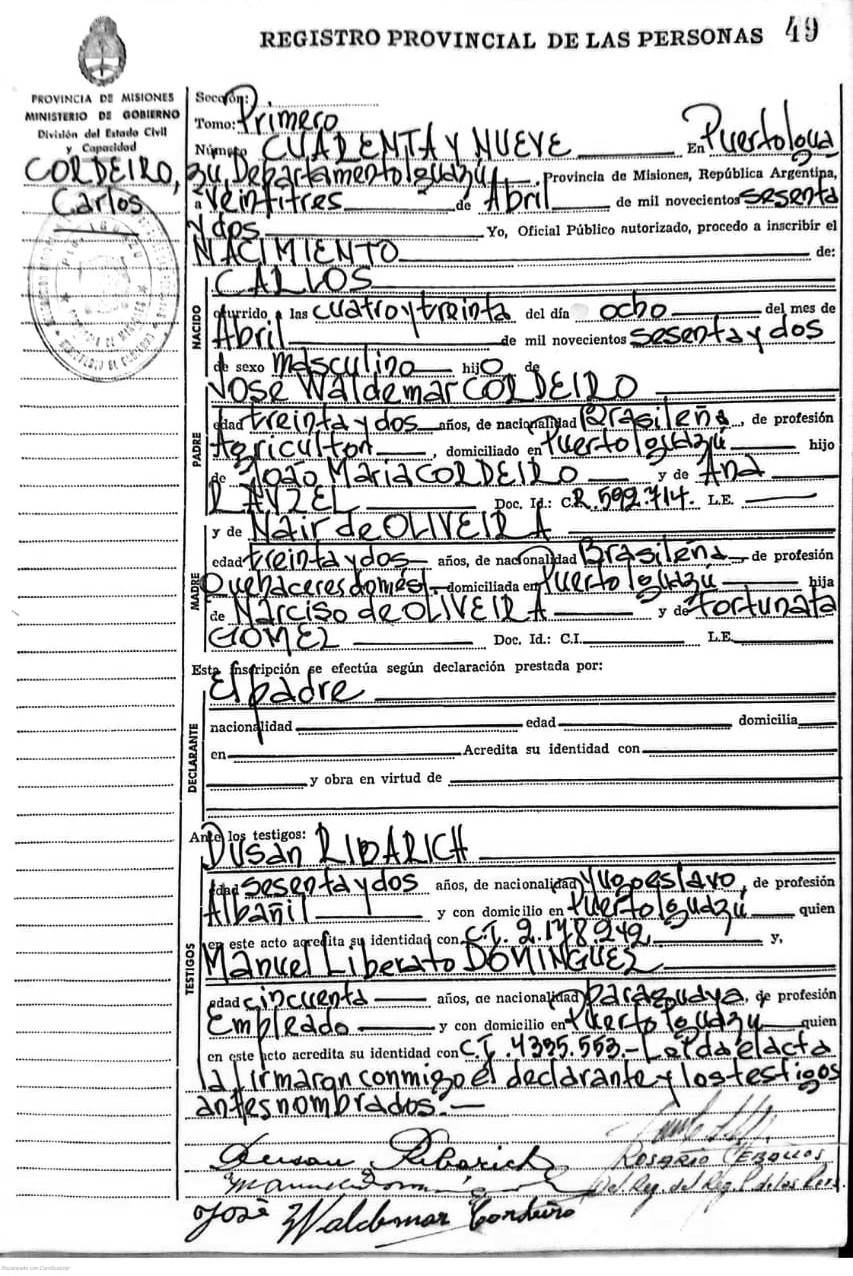 REGISTRO PROVINCIAL DE LAS PERSONAS 49
PROVINCIA DE MISIONES
MINISTERIO DE GOBIERNO
División del Estado Civil
y Capacidad
CORDEIRO,
Carlos
Sección:
Tomo: Primero
Número CUARENTA Y NUEVE En Puerto Igua
zú, Departamento Iguazú Provincia de Misiones, República Argentina,
a Veintitres de Abril de mil novecientos sesenta
y dos Yo, Oficial Público autorizado, procedo a inscribir el
NACIMIENTO de:
CARLOS
NACIDO
ocurrido a las cuatro y treinta del día ocho del mes de
Abril de mil novecientos sesenta y dos
de sexo masculino hijo de
José Waldemar CORDEIRO
PADRE
edad treinta y dos años, de nacionalidad Brasileña, de profesión
Agricultor, domiciliado en Puerto Iguazú hijo
de João Maria CORDEIRO y de Ana
Doc. Id.: C.R. 592.714. L.E.
y de Nair de OLIVEIRA
MADRE
edad treinta y dos años, de nacionalidad Brasileña de profesión
Quehaceres domést. domiciliada en Puerto Iguazú hija
de Narciso de OLIVEIRA y de Fortunata
GOMEZ Doc. Id.: C.I. L.E.
Esta inscripción se efectúa según declaración prestada por:
El padre
DECLARANTE
nacionalidad edad domicilia
en Acredita su identidad con
y obra en virtud de
Ante los testigos:
Dusan RIBARICH
TESTIGOS
edad sesenta y dos años, de nacionalidad Yugoeslavo, de profesión
Albañil y con domicilio en Puerto Iguazú quien
en este acto acredita su identidad con C.I. 2.178.242, y,
Manuel Liberato DOMINGUEZ
edad cincuenta años, de nacionalidad paraguaya, de profesión
Empleado y con domicilio en Puerto Iguazú quien
en este acto acredita su identidad con C.I. 4335.553.- Leída el acta
la firmaron conmigo el declarante y los testigos
antes nombrados.-
Dusan Ribarich
ROSARIO CEBALLOS
José Waldemar Cordeiro